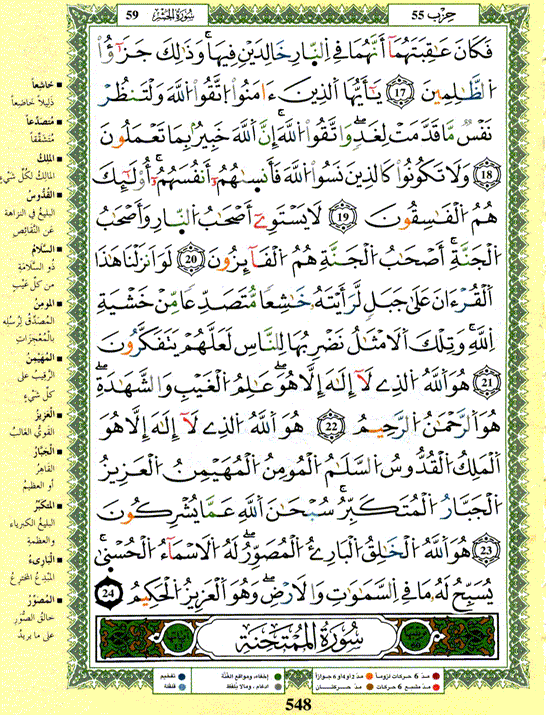 حِزْب 55
سُورَةُ الحَشْر
59
فَكَانَ عَٰقِبَتَهُمَآ أَنَّهُمَا فِى اِ۬لنّ۪ارِ خَٰلِدَيْنِ فِيهَاۖ وَذَٰلِكَ جَزَٰٓؤُاْ
اُ۬لظَّٰلِمِينَ 17 يَٰٓأَيُّهَا اَ۬لذِينَ ءَامَنُواْ اُ۪تَّقُواْ اُ۬للَّهَ وَلْتَنظُرْ
نَفْسٌ مَّا قَدَّمَتْ لِغَدٍۖ وَاتَّقُواْ اُ۬للَّهَۖ إِنَّ اَ۬للَّهَ خَبِيرُۢ بِمَا تَعْمَلُونَ
18 وَلَا تَكُونُواْ كَالذِينَ نَسُواْ اُ۬للَّهَ فَأَنس۪يٰهُمُۥٓ أَنفُسَهُمُۥٓۖ أُوْلَٰٓئِكَ
هُمُ اُ۬لْفَٰسِقُونَ 19 لَا يَسْتَوِىٓ أَصْحَٰبُ اُ۬لنّ۪ارِ وَأَصْحَٰبُ
اُ۬لْجَنَّةِۖ أَصْحَٰبُ اُ۬لْجَنَّةِ هُمُ اُ۬لْفَآئِزُونَ 20 لَوَ اَنزَلْنَا هَٰذَا
اَ۬لْقُرْءَانَ عَلَىٰ جَبَلٍ لَّرَأَيْتَهُۥ خَٰشِعًا مُّتَصَدِّعًا مِّنْ خَشْيَةِ
اِ۬للَّهِۖ وَتِلْكَ اَ۬لَامْثَٰلُ نَضْرِبُهَا لِلنَّاسِ لَعَلَّهُمْ يَتَفَكَّرُونَ
21 هُوَ اَ۬للَّهُ اُ۬لذِى لَآ إِلَٰهَ إِلَّا هُوَۖ عَٰلِمُ اُ۬لْغَيْبِ وَالشَّهَٰدَةِۖ
هُوَ اَ۬لرَّحْمَٰنُ اُ۬لرَّحِيمُ 22 هُوَ اَ۬للَّهُ اُ۬لذِى لَآ إِلَٰهَ إِلَّا هُوَ
اَ۬لْمَلِكُ اُ۬لْقُدُّوسُ اُ۬لسَّلَٰمُ اُ۬لْمُومِنُ اُ۬لْمُهَيْمِنُ اُ۬لْعَزِيزُ
اُ۬لْجَبَّارُ اُ۬لْمُتَكَبِّرُۖ سُبْحَٰنَ اَ۬للَّهِ عَمَّا يُشْرِكُونَ
23 هُوَ اَ۬للَّهُ اُ۬لْخَٰلِقُ اُ۬لْبَارِئُ اُ۬لْمُصَوِّرُۖ لَهُ اُ۬لَاسْمَآءُ اُ۬لْحُسْن۪ىٰۖ
يُسَبِّحُ لَهُۥ مَا فِى اِ۬لسَّمَٰوَٰتِ وَالَارْضِۖ وَهُوَ اَ۬لْعَزِيزُ اُ۬لْحَكِيمُ 24
سُورَةُ المُمْتَحنَة
خاشِعاً
ذَليلاً خاضِعاً
مُتصَدِّعاً
مُتَشَقِّقاً
المَلِكُ
المالِكُ لكُلِّ شيْءٍ
القُدُّوسُ
البَليغُ في النزاهة
عَن النَّقائِص
السَّلامُ
ذُو السَّلامَةِ
من كلِّ عَيْبٍ
المومِنُ
المُصدِّقُ لِرُسُلِهِ
بالمُعْجِزاتِ
المُهَيْمِنُ
الرَّقيبُ على
كلِّ شيءٍ
العَزِيزُ
القويُّ الغالبُ
الجَبّارُ
القاهِرُ
أو العظيمُ
المتكبِّرُ
البليغُ الكبرياء
والعظمةِ
البارئُ
المُبْدِعُ المُخترِعُ
المُصَوِّرُ
خالقُ الصُّوَرِ
على ما يريدُ
مدّ 6 حركات لزوماً
مدّ 2 أو 4 أو 6 جوازاً
إخفاء، ومواقع الغُنَّة
تفخيم
مدّ مشبع 6 حركات
مدّ حركتان
إدغام، وما لا يُلفَظ
قلقلة
548